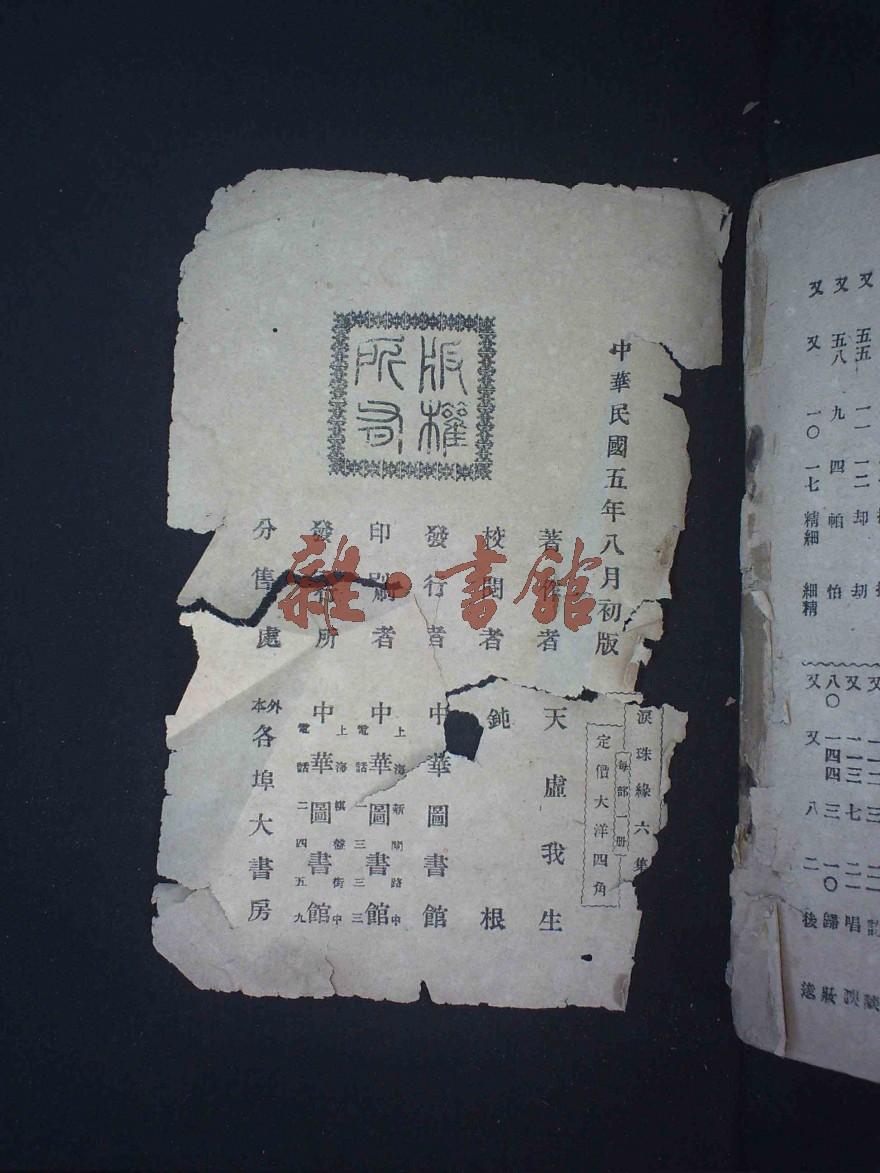 版權所有
中華民國五年八月初版
淚珠緣六集
每部一册
定價大洋四角
著作者 天虛我生
校閱者 鈍根
發行者 中華圖書館
印刷者 上海新閘路中 中華圖書館 電話一三三三
發行所 上海棋盤街中 中華圖書館 電話二四五九
分售處 外本各埠大書房
雜·書館
又 五五 一一 一二 却 劫
又 五八 九 四 帕 怕
又 又 一〇 一七 精細 細精
唱
八〇 一四四 三 一〇 歸 妝
又 又 八 二 後